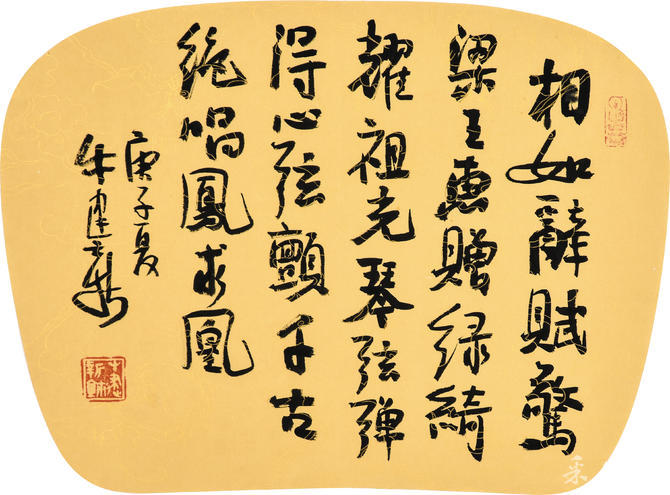 相如辭賦驚
梁王惠贈绿綺
耀祖光琴弦彈
得心弦顫千古
绝唱鳳求凰
庚子夏
牛建新